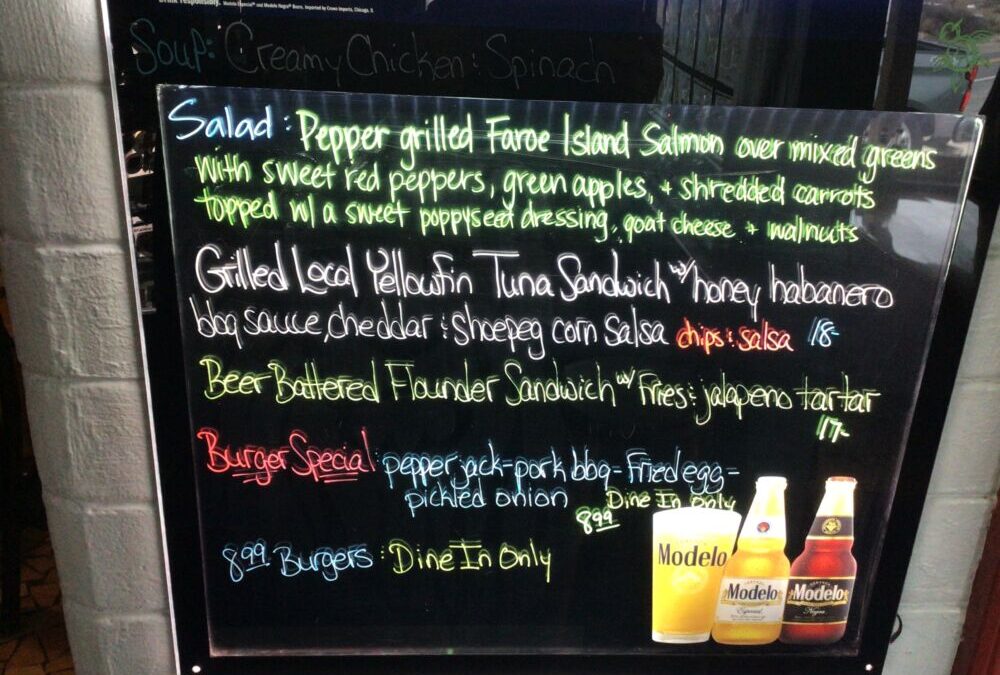 Drink responsibly. Modelo Especial® and Modelo Negra® Beers. Imported by Crown Imports, Chicago, IL
Soup: Creamy Chicken & Spinach
Salad: Pepper grilled Faroe Island Salmon over mixed greens
with sweet red peppers, green apples, + shredded carrots
topped w/ a sweet poppyseed dressing, goat cheese + walnuts
Grilled Local Yellowfin Tuna Sandwich w/ honey habanero
bbq sauce, cheddar & shoepeg corn salsa chips & salsa 18-
Beer Battered Flounder Sandwich w/ Fries & jalapeno tartar
17-
Burger Special: pepper jack - pork bbq - Fried egg -
pickled onion Dine In Only
8.99
8.99 Burgers: Dine In Only
Modelo
Modelo
Especial
Modelo
Negra